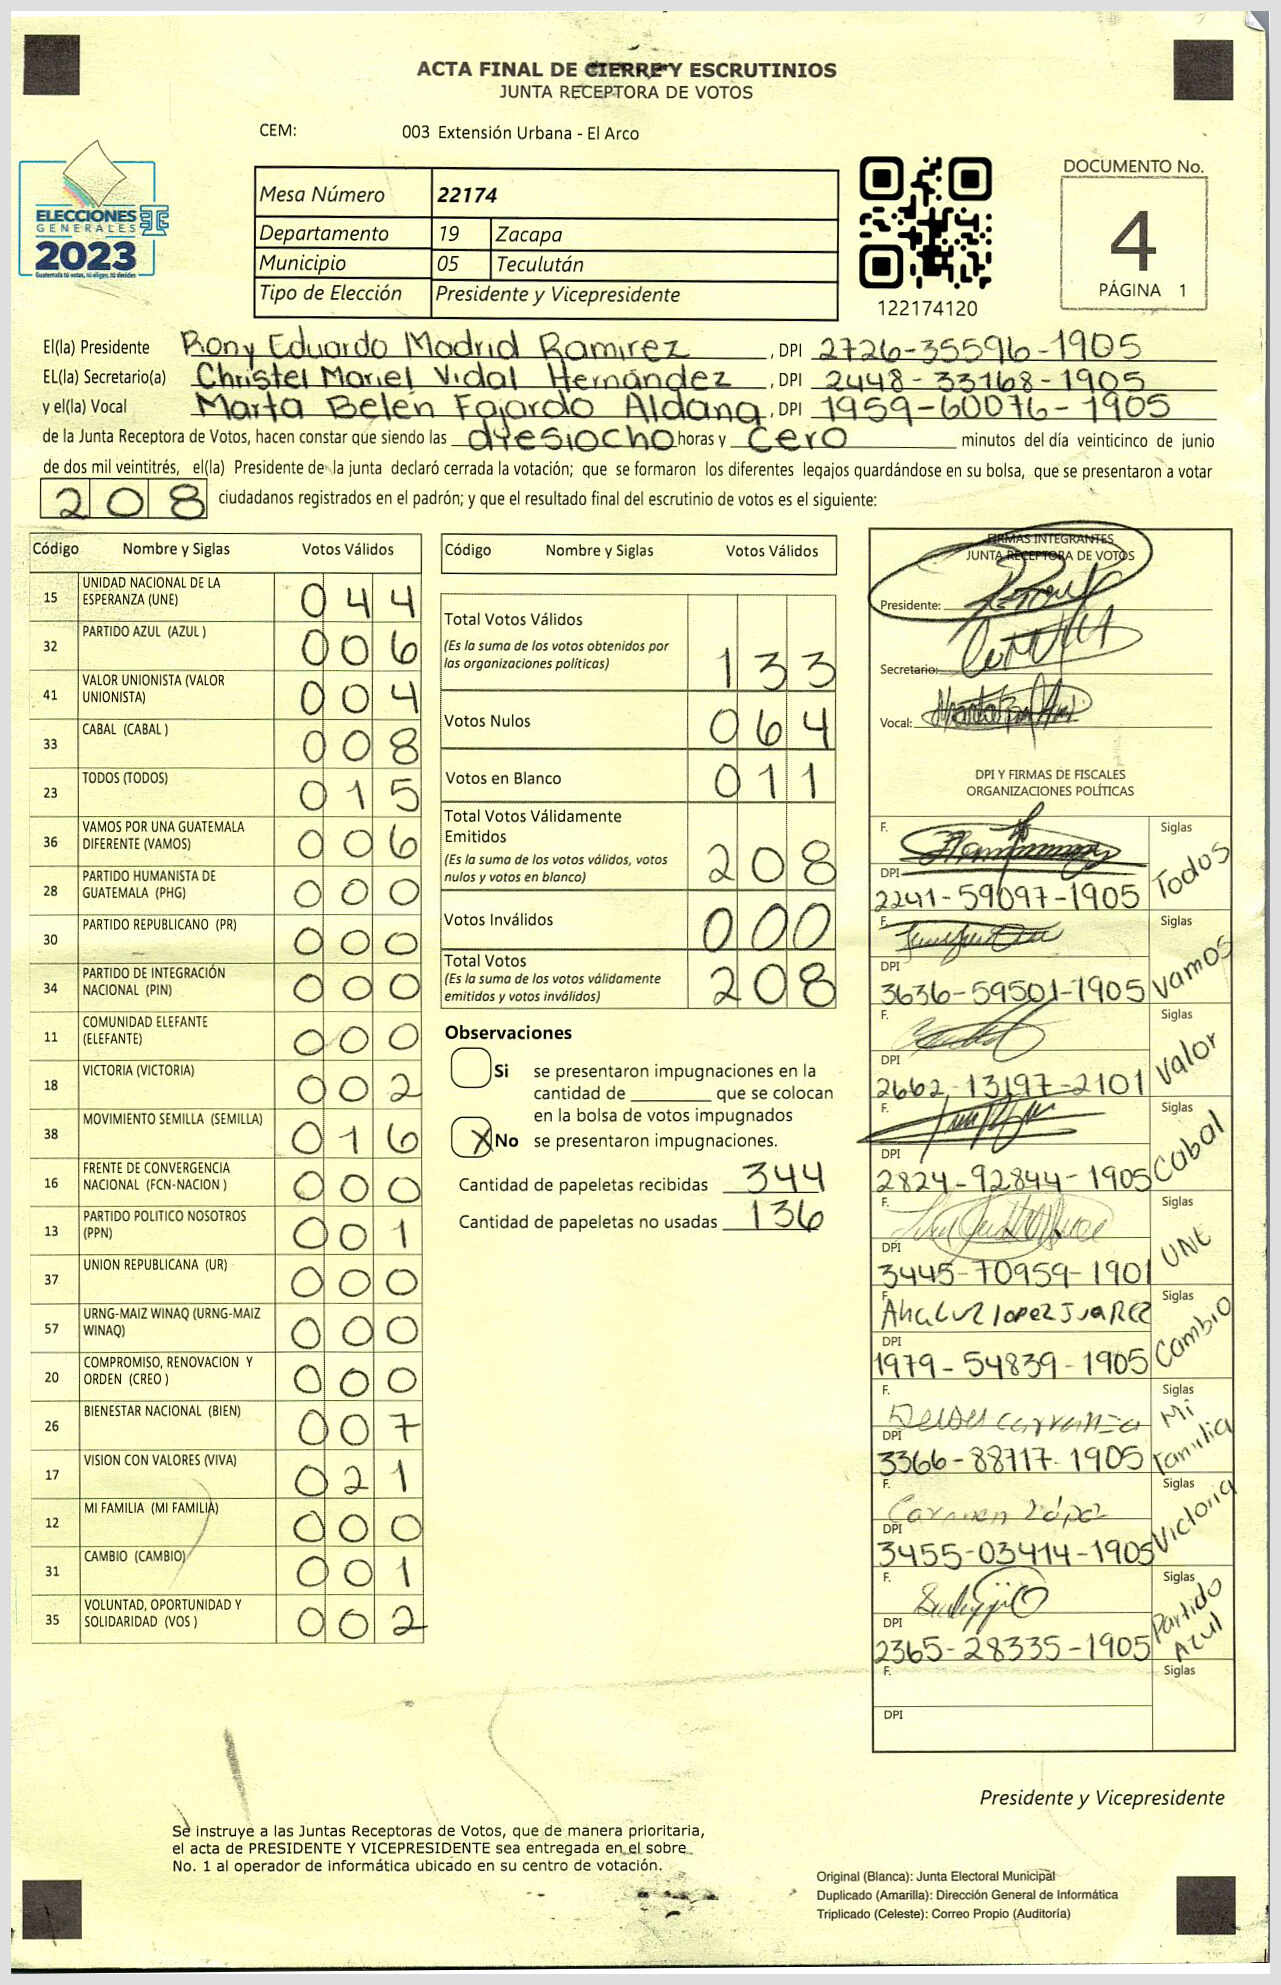 ACTA FINAL DE CIERRE Y ESCRUTINIOS
JUNTA RECEPTORA DE VOTOS
CEM: 003 Extensión Urbana - El Arco
ELECCIONES
GENERALES
2023
Guatemala tú votas, tú eliges, tú decides
Mesa Número 22174
Departamento 19 Zacapa
Municipio 05 Teculután
Tipo de Elección Presidente y Vicepresidente
122174120
DOCUMENTO No.
4
PÁGINA 1
El(la) Presidente Rony Eduardo Madrid Ramirez, DPI 2726-35596-1905
EL(la) Secretario(a) Christel Mariel Vidal Hernández, DPI 2448-33168-1905
y el(la) Vocal Marta Belén Fajardo Aldana, DPI 1959-60076-1905
de la Junta Receptora de Votos, hacen constar que siendo las dyesiocho horas y cero minutos del día veinticinco de junio
de dos mil veintitrés, el(la) Presidente de la junta declaró cerrada la votación; que se formaron los diferentes legajos guardándose en su bolsa, que se presentaron a votar
208 ciudadanos registrados en el padrón; y que el resultado final del escrutinio de votos es el siguiente:
Código Nombre y Siglas Votos Válidos
15 UNIDAD NACIONAL DE LA ESPERANZA (UNE) 044
32 PARTIDO AZUL (AZUL ) 006
41 VALOR UNIONISTA (VALOR UNIONISTA) 004
33 CABAL (CABAL ) 008
23 TODOS (TODOS) 015
36 VAMOS POR UNA GUATEMALA DIFERENTE (VAMOS) 006
28 PARTIDO HUMANISTA DE GUATEMALA (PHG) 000
30 PARTIDO REPUBLICANO (PR) 000
34 PARTIDO DE INTEGRACIÓN NACIONAL (PIN) 000
11 COMUNIDAD ELEFANTE (ELEFANTE) 000
18 VICTORIA (VICTORIA) 002
38 MOVIMIENTO SEMILLA (SEMILLA) 016
16 FRENTE DE CONVERGENCIA NACIONAL (FCN-NACION ) 000
13 PARTIDO POLITICO NOSOTROS (PPN) 001
37 UNION REPUBLICANA (UR) 000
57 URNG-MAIZ WINAQ (URNG-MAIZ WINAQ) 000
20 COMPROMISO, RENOVACION Y ORDEN (CREO ) 000
26 BIENESTAR NACIONAL (BIEN) 007
17 VISION CON VALORES (VIVA) 021
12 MI FAMILIA (MI FAMILIA) 000
31 CAMBIO (CAMBIO) 001
35 VOLUNTAD, OPORTUNIDAD Y SOLIDARIDAD (VOS ) 002
Código Nombre y Siglas Votos Válidos
Total Votos Válidos
(Es la suma de los votos obtenidos por
las organizaciones políticas) 133
Votos Nulos 064
Votos en Blanco 011
Total Votos Válidamente
Emitidos
(Es la suma de los votos válidos, votos
nulos y votos en blanco) 208
Votos Inválidos 000
Total Votos
(Es la suma de los votos válidamente
emitidos y votos inválidos) 208
Observaciones
Si se presentaron impugnaciones en la
cantidad de ________ que se colocan
en la bolsa de votos impugnados
X No se presentaron impugnaciones.
Cantidad de papeletas recibidas 344
Cantidad de papeletas no usadas 136
FIRMAS INTEGRANTES
JUNTA RECEPTORA DE VOTOS
Presidente:
Secretario:
Vocal:
DPI Y FIRMAS DE FISCALES
ORGANIZACIONES POLÍTICAS
F. Siglas
DPI
2241-59097-1905 Todos
F. Siglas
DPI
3636-59501-1905 Vamos
F. Siglas
DPI
2662-13197-2101 Valor
F. Siglas
DPI
2824-92844-1905 Cabal
F. Siglas
DPI
3445-70959-1901 UNE
F. Ana Luz lopez JuaREZ Siglas
DPI
1979-54839-1905 Cambio
F. Siglas
DPI
3366-88717-1905 Mi Familia
F. Carmen López Siglas
DPI
3455-03414-1905 Victoria
F. Siglas
DPI
2365-28335-1905 Partido Azul
F. Siglas
DPI
Presidente y Vicepresidente
Se instruye a las Juntas Receptoras de Votos, que de manera prioritaria,
el acta de PRESIDENTE Y VICEPRESIDENTE sea entregada en el sobre
No. 1 al operador de informática ubicado en su centro de votación.
Original (Blanca): Junta Electoral Municipal
Duplicado (Amarilla): Dirección General de Informática
Triplicado (Celeste): Correo Propio (Auditoría)